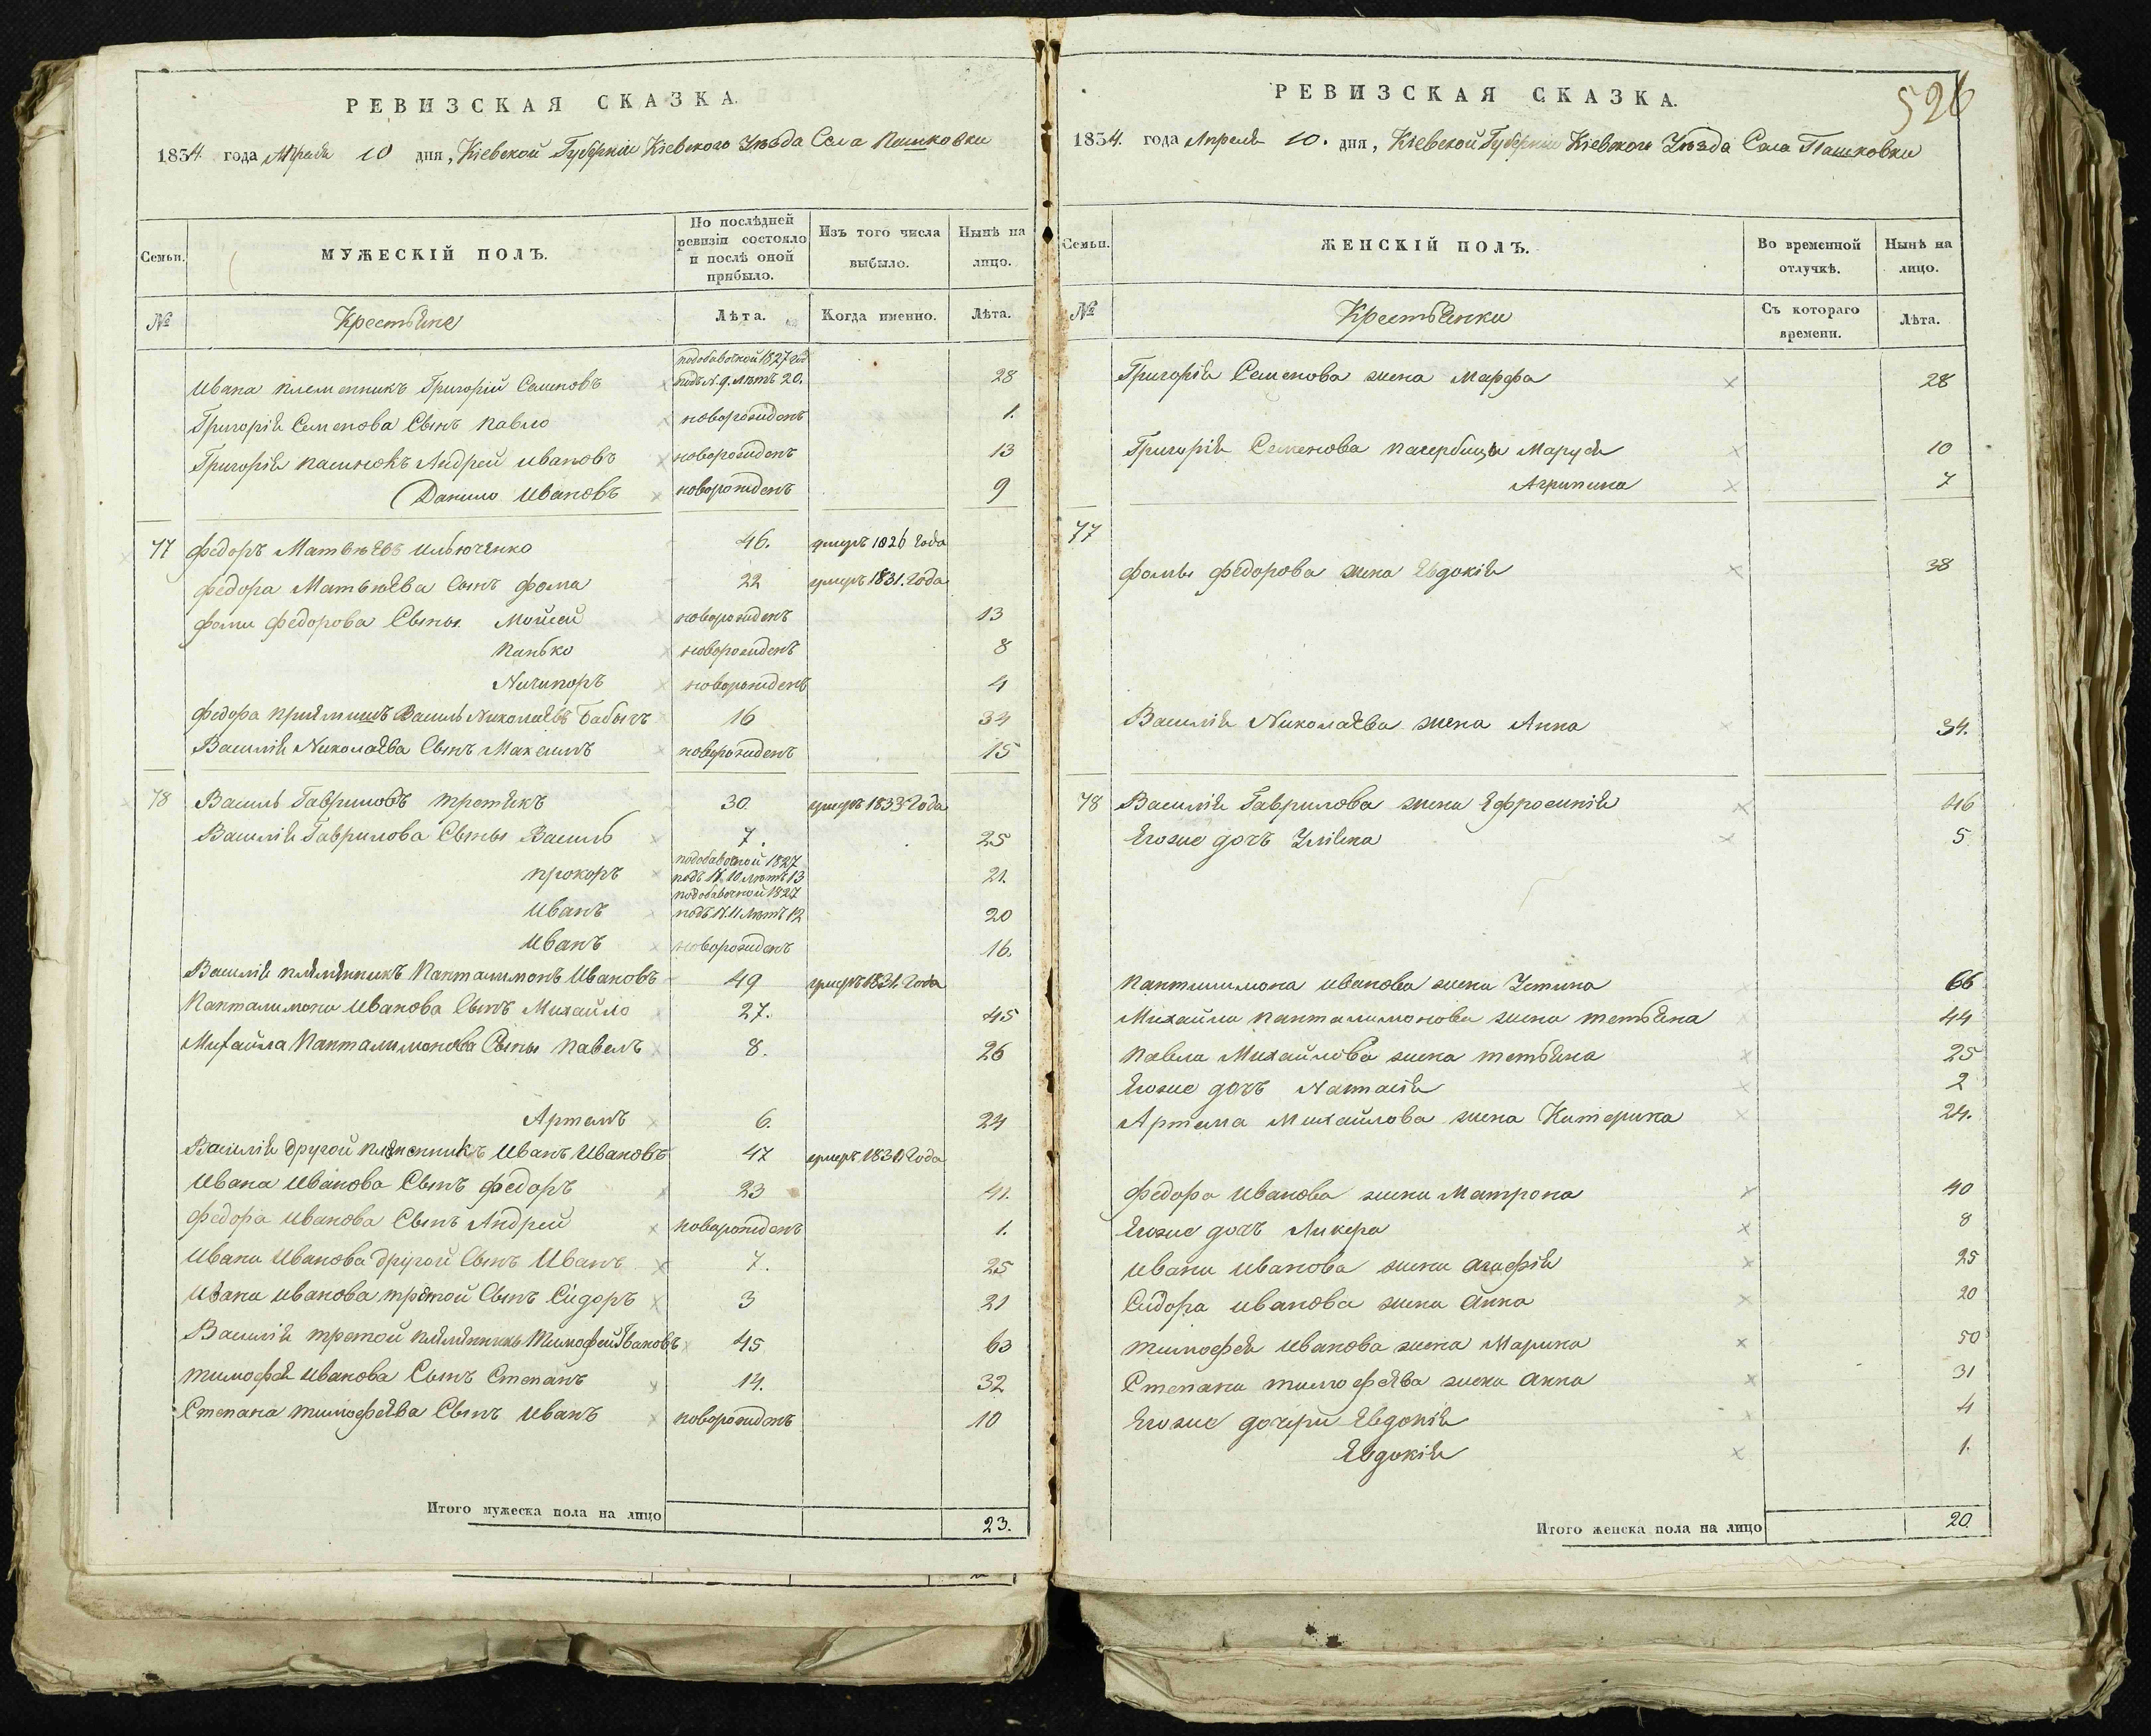 РЕВИЗСКАЯ СКАЗКА.
1834 года Апреля 10 дня, Кіевской Губерніи Кіевского Уѣзда Села Пашковки
Семьи.
МУЖЕСКІЙ ПОЛЪ.
По послѣдней ревизіи состояло и послѣ оной прибыло.
Изъ того числа выбыло.
Нынѣ на лицо.
№
Крестьяне
Лѣта.
Когда именно.
Лѣта.
Ивана племенникъ Григорій Семеновъ подобавочной 1827 год подъ N. 9. лѣтъ 20. 28
Григорія Семенова Сынъ Павло новорожденъ 1.
Григорія пасинокъ Андрей Ивановъ новорожденъ 13
Данило Ивановъ новорожденъ 9
77 Федоръ Матвѣевъ Ильюченко 46. умеръ 1826 Года
Федора Матвѣева Сынъ Фома 22 умеръ 1831. Года
Фоми Федорова Сыны Мойсей новорожденъ 13
Панько новорожденъ 8
Ничипоръ новорожденъ 4
Федора приямишъ Василь Николаевъ Бабычъ 16 34
Василія Николаева Сынъ Максимъ новорожденъ 15
78 Василь Гавриловъ третякъ 30. умеръ 1833 Года
Василія Гаврилова Сыны Василь 7. 25
прокоръ подобавочной 1827 подъ N. 10. лѣтъ 13 21.
Иванъ подобавочной 1827 подъ N. 11 лѣтъ 12 20
Иванъ новорожденъ 16.
Василія племянникъ Панталимонъ Ивановъ 49 умеръ 1831. Года
Панталимона Иванова Сынъ Михайло 27. 45
Михайла Панталимонова Сыны Павелъ 8. 26
Артемъ 6. 24
Василія другой племенникъ Иванъ Ивановъ 47 умеръ 1830 Года
Ивана Иванова Сынъ Федоръ 23 41.
Федора Иванова Сынъ Андрей новорожденъ 1.
Ивана Иванова другой Сынъ Иванъ 7. 25
Ивана Иванова третой Сынъ Сидоръ 3 21
Василія третой племянникъ Тимофей Ивановъ 45 63
Тимофея Иванова Сынъ Степанъ 14. 32
Степана Тимофеева Сынъ Иванъ новорожденъ 10
Итого мужеска пола на лицо 23.
526
РЕВИЗСКАЯ СКАЗКА.
1834. года Апреля 10. дня, Кіевской Губерніи Кіевского Уѣзда Села Пашковки
Семьи.
ЖЕНСКІЙ ПОЛЪ.
Во временной отлучкѣ.
Нынѣ на лицо.
№
Крестьянки
Съ котораго времени.
Лѣта.
Григорія Семенова жена Марфа 28
Григорія Семенова пасербица Маруся 10
Агрипина 7
77
Фомы Федорова жена Евдокія 38
Василія Николаева жена Анна 34.
78 Василія Гаврилова жена Ефросинія 46
Егоже дочъ Уліяна 5
Панталимона Иванова жена Устина 66
Михайла Панталимонова жена Тетьяна 44
Павла Михайлова жена Тетьяна 25
Егоже дочъ Настасія 2
Артема Михайлова жена Катерина 24.
Федора Иванова жена Матрона 40
Егоже дочъ Ликера 8
Ивана Иванова жена Агафія 25
Сидора Иванова жена Анна 20
Тимофея Иванова жена Марина 50
Степана Тимофеева жена Анна 31
Егоже дочери Евдокія 4
Евдокія 1.
Итого женска пола на лицо 20.